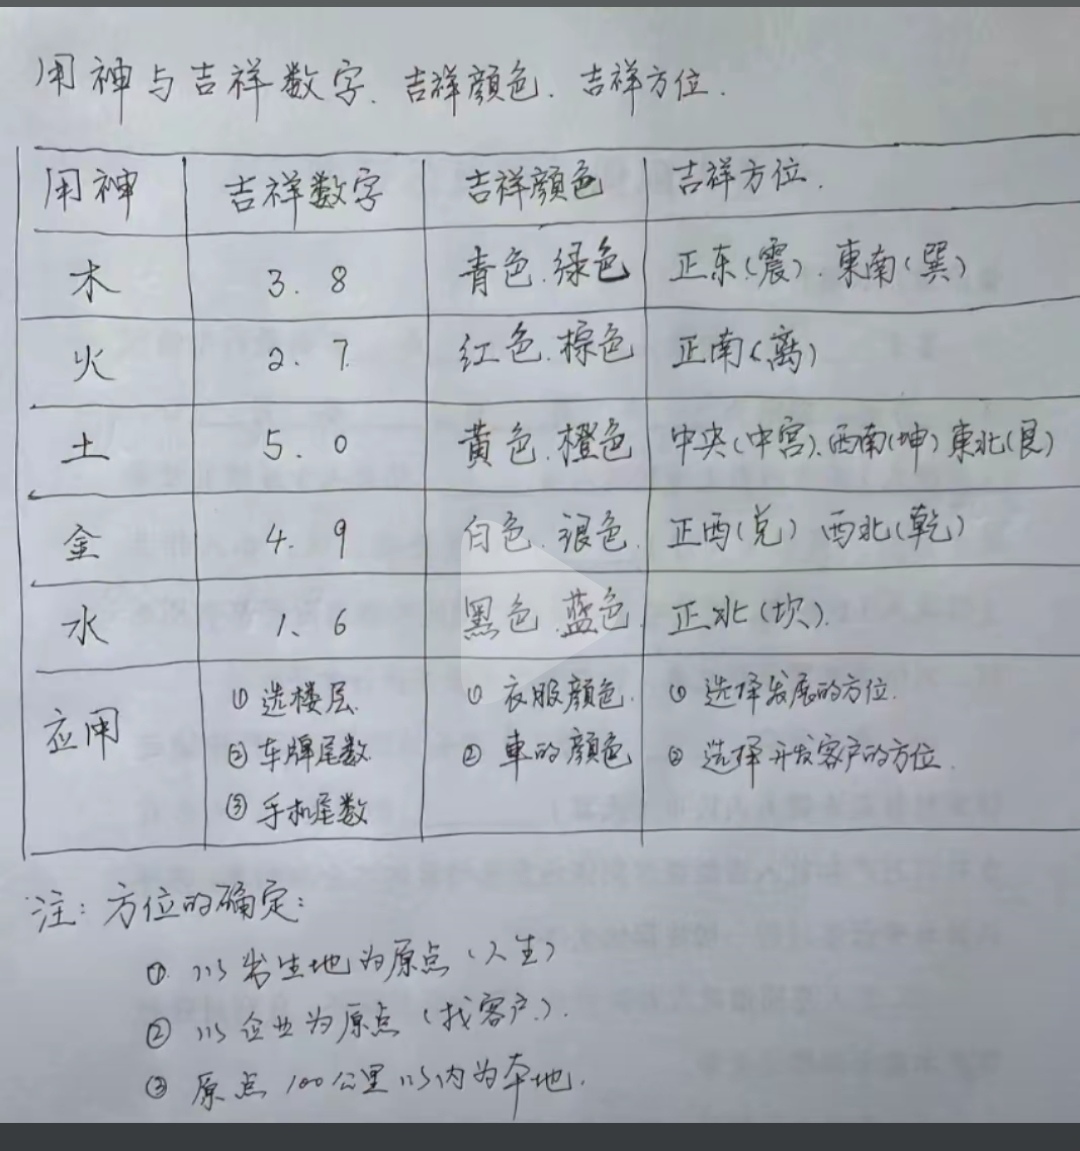 用神与吉祥数字、吉祥顔色、吉祥方位.
用神 吉祥数字 吉祥顔色 吉祥方位.
木 3、8 青色、绿色 正东(震)、東南(巽)
火 2、7 红色、棕色 正南(离)
土 5、0 黄色、橙色 中央(中宫)、西南(坤) 東北(艮)
金 4、9 白色、银色 正西(兑) 西北(乾)
水 1、6 黑色、蓝色 正北(坎)
应用 ①选楼层 ①衣服顔色 ①选择发展的方位.
②车牌尾数 ②車的顔色 ②选择开发客户的方位.
③手机尾数
注:方位的确定:
① 以出生地为原点(人生)
② 以企业为原点(找客户).
③ 原点100公里以内为本地.